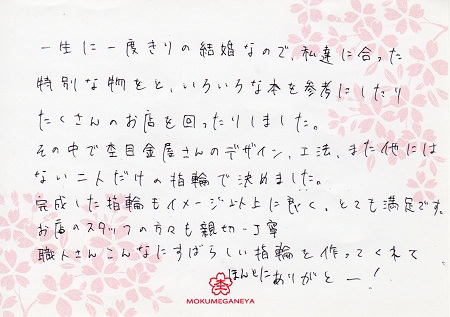 一生に一度きりの結婚なので、私達に合った
特別な物をと、いろいろな本を参考にしたり
たくさんのお店を回ったりしました。
その中で杢目金屋さんのデザイン、工法、また他には
ない二人だけの指輪で決めました。
完成した指輪もイメージ以上に良く、とても満足です。
お店のスタッフの方々も親切、丁寧
職人さんこんなにすばらしい指輪を作ってくれて
ほんとにありがとー!
MOKUMEGANEYA